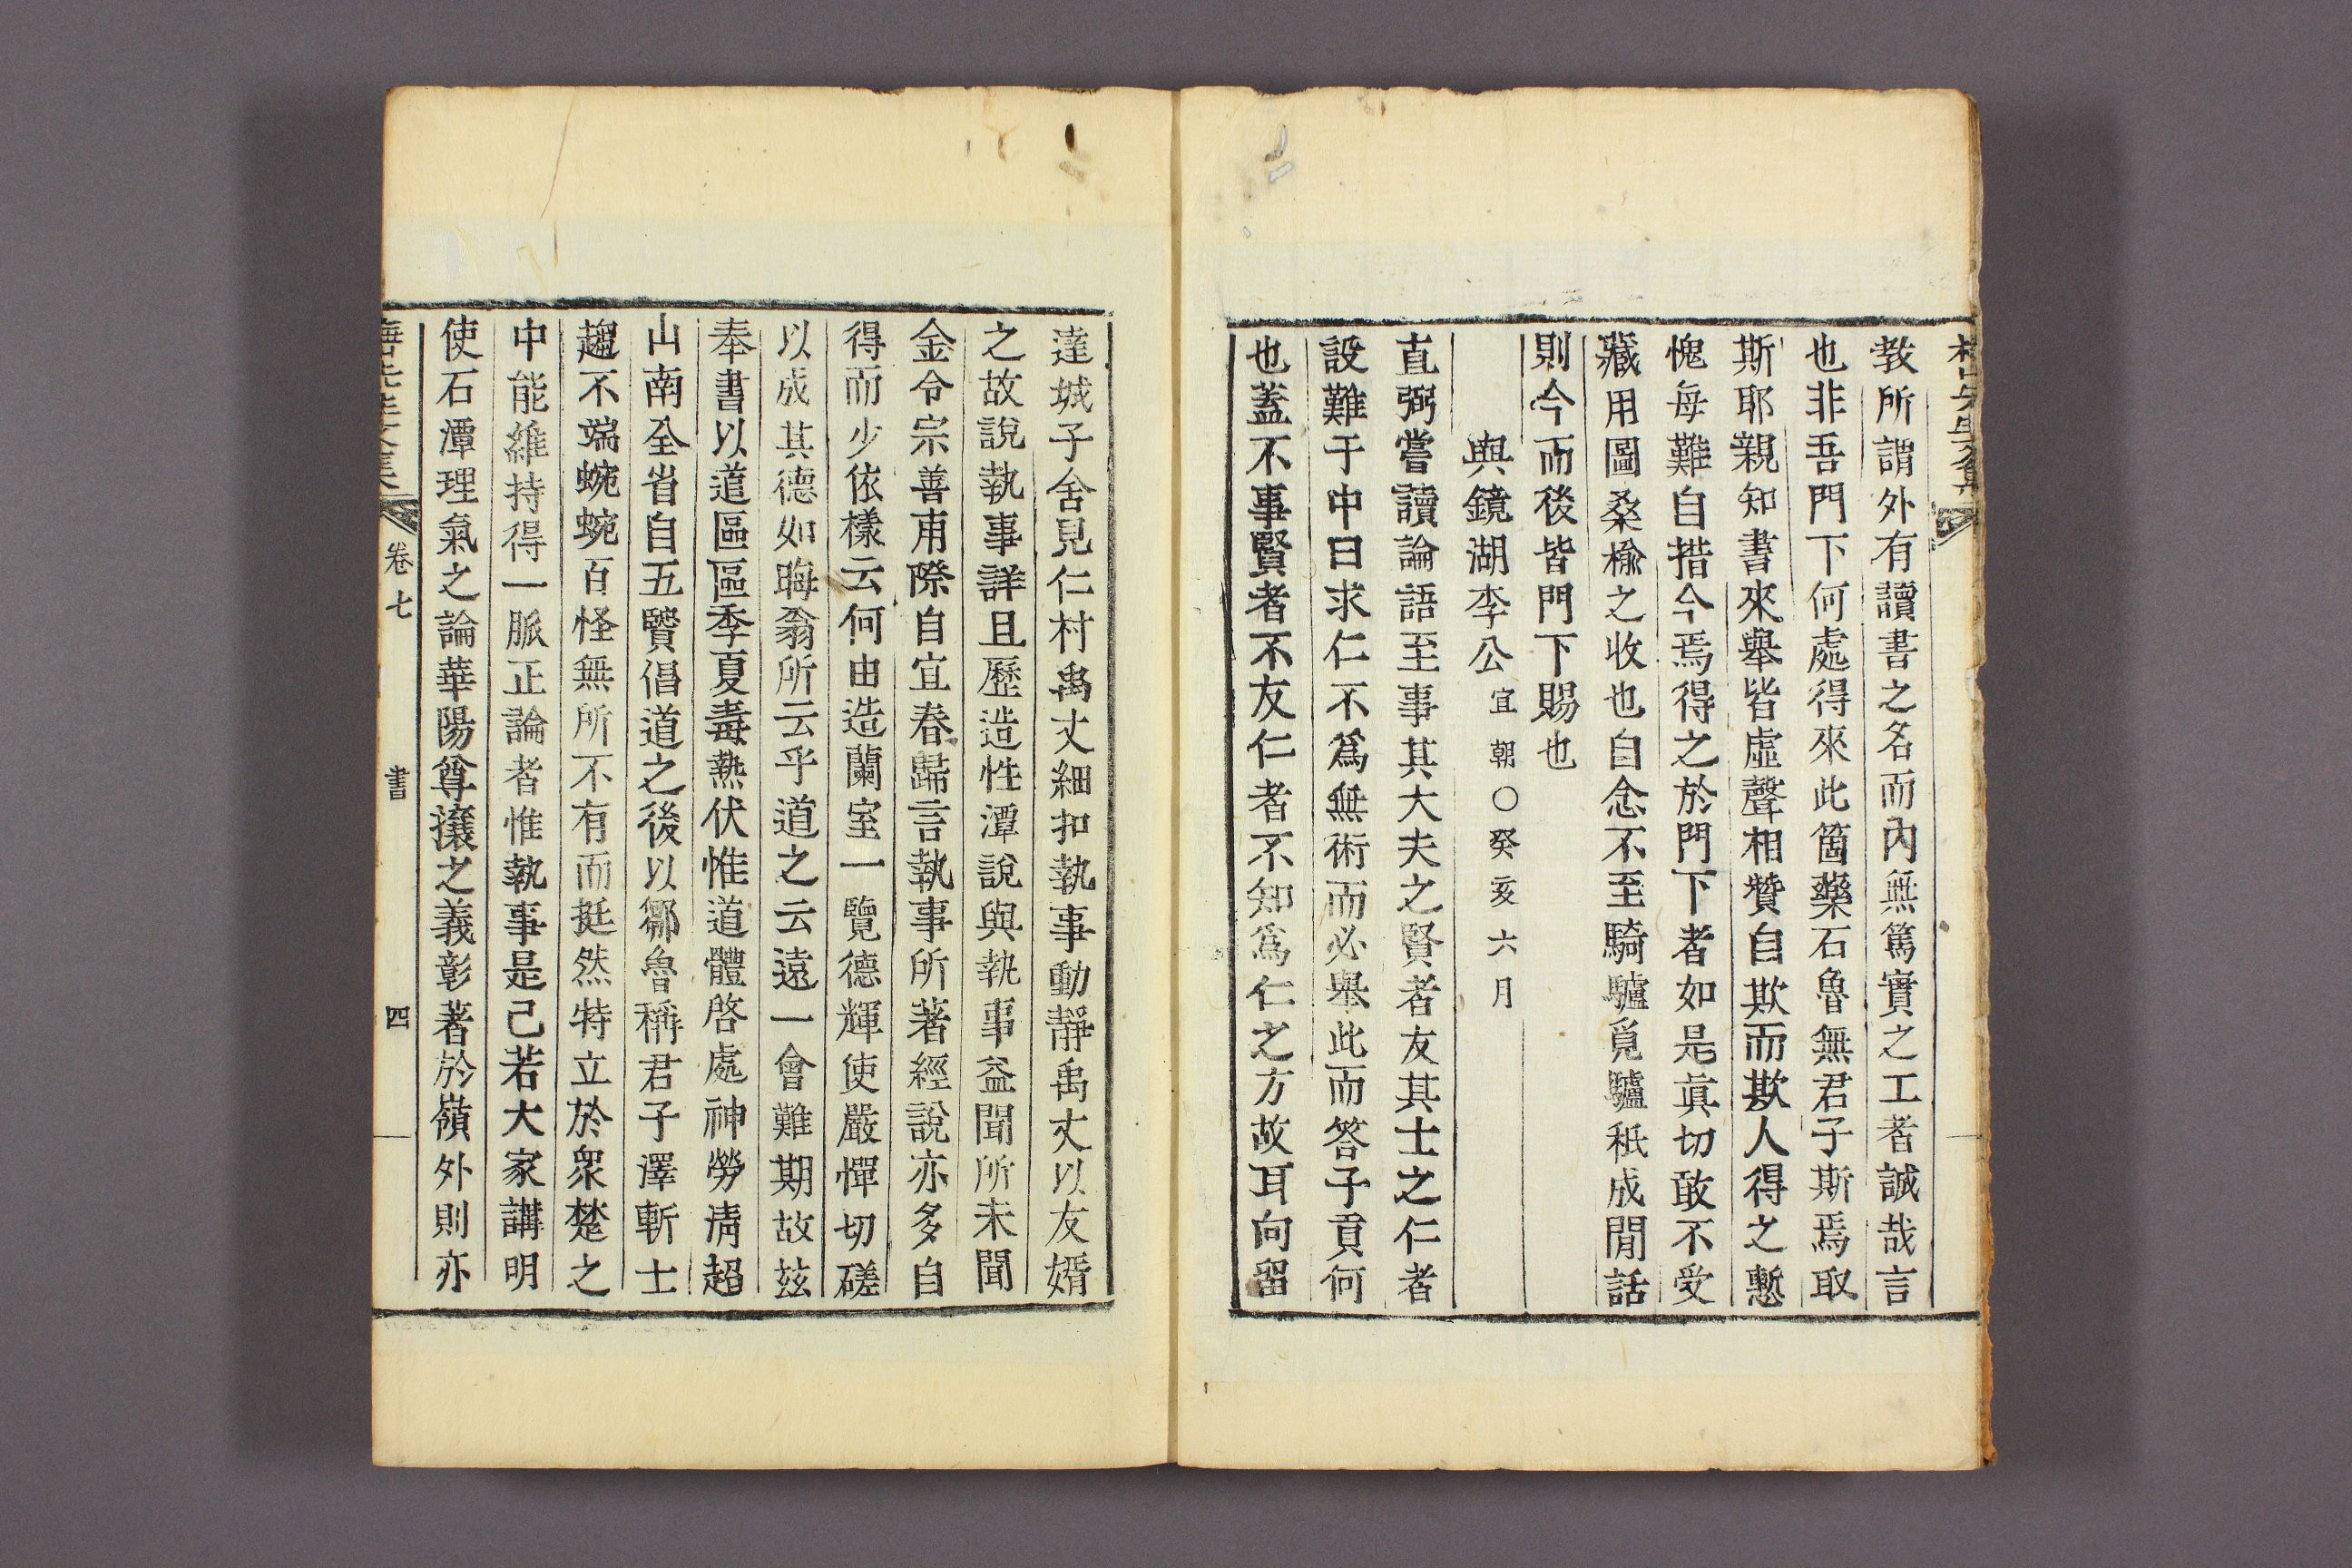 敎所謂外有讀書之名而內無篤實之工者誠哉言
也非吾門下何處得來此箇藥石魯無君子斯焉取
斯耶親知書來舉皆虛聲相贊自欺而欺人得之慙
愧每難自措今焉得之於門下者如是眞切敢不受
藏用圖桑楡之收也自念不至騎驢覓驢秖成閒話
則今而後皆門下賜也
與鏡湖李公宜朝○癸亥六月
直弼嘗讀論語至事其大夫之賢者友其士之仁者
設難于中曰求仁不爲無術而必舉此而答子貢何
也蓋不事賢者不友仁者不知爲仁之方故耳向留
達城子舍見仁村禹丈細扣執事動靜禹丈以友婿
之故說執事詳且歷造性潭說與執事益聞所未聞
金令宗善甫際自宜春歸言執事所著經說亦多自
得而少依樣云何由造蘭室一覽德輝使嚴憚切磋
以成其德如晦翁所云乎道之云遠一會難期故玆
奉書以道區區季夏毒熱伏惟道體啓處神勞淸超
山南全省自五贒倡道之後以鄒魯稱君子澤斬士
趨不端蜿蜿百怪無所不有而挺然特立於衆楚之
中能維持得一脈正論者惟執事是已若大家講明
使石潭理氣之論華陽尊攘之義彰著於嶺外則亦
卷七
書
四